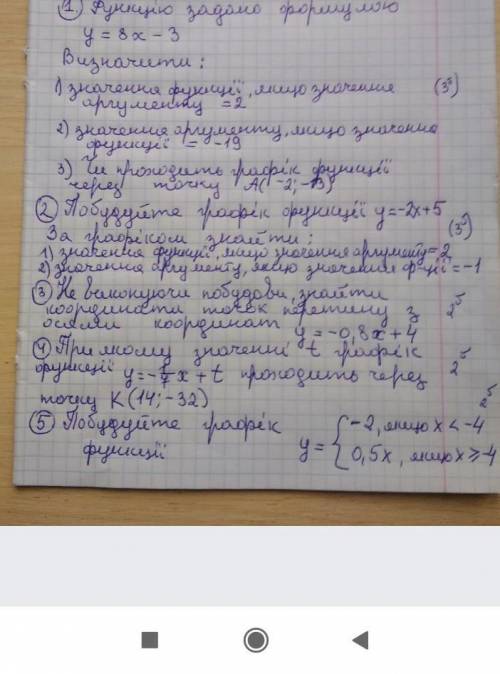 ① Функцію задано формулою
y = 8x - 3
Визначити:
1) значення функції, якщо значення аргументу = 2 (3б)
2) значення аргументу, якщо значення функції = -19
3) Чи проходить графік функції
через точку A(-2; -13)
② Побудуйте графік функції y=-2x+5
За графіком знайти: (3б)
1) значення функції, якщо значення аргументу = 2
2) значення аргументу, якщо значення ф-ції = -1
③ Не виконуючи побудови, знайти
координати точок перетину з 2б
осями координат y = -0,8x+4
④ При якому значенні t графік
функції y=- x + t проходить через 2б
точку K(14; -32)
⑤ Побудуйте графік 2б
функції y = { -2, якщо x < -4
0,5x, якщо x ≥ -4